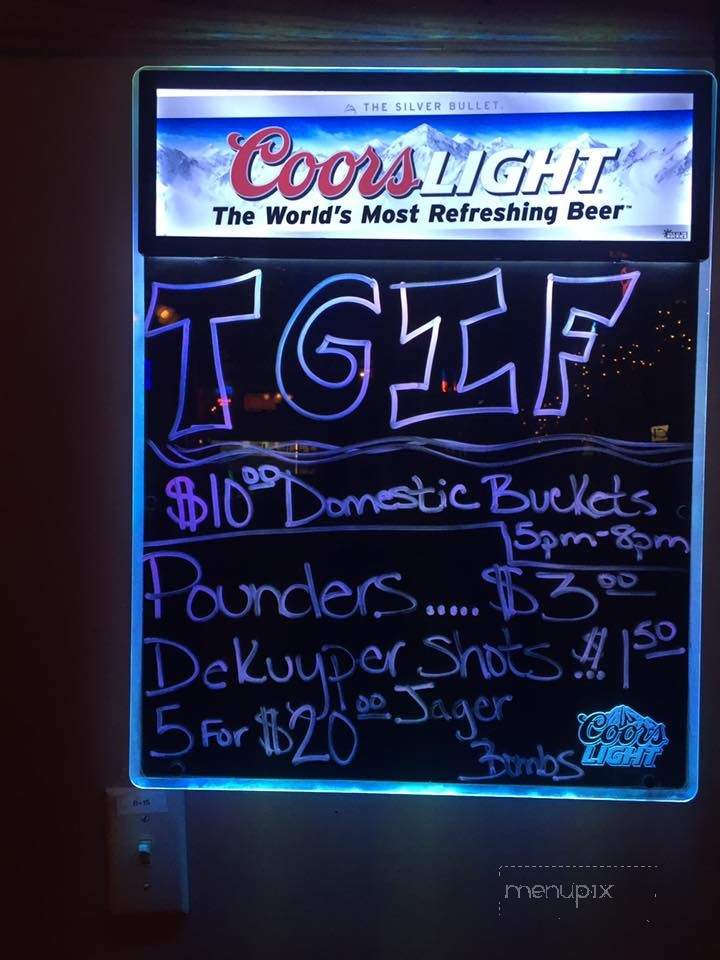 THE SILVER BULLET.
Coors LIGHT
The World's Most Refreshing Beer™
TGIF
$10.00 Domestic Buckets
5pm-8pm
Pounders..... $3.00
DeKuyper Shots $1.50
5 For $20.00 Jager
Bombs
Coors
LIGHT
menupix